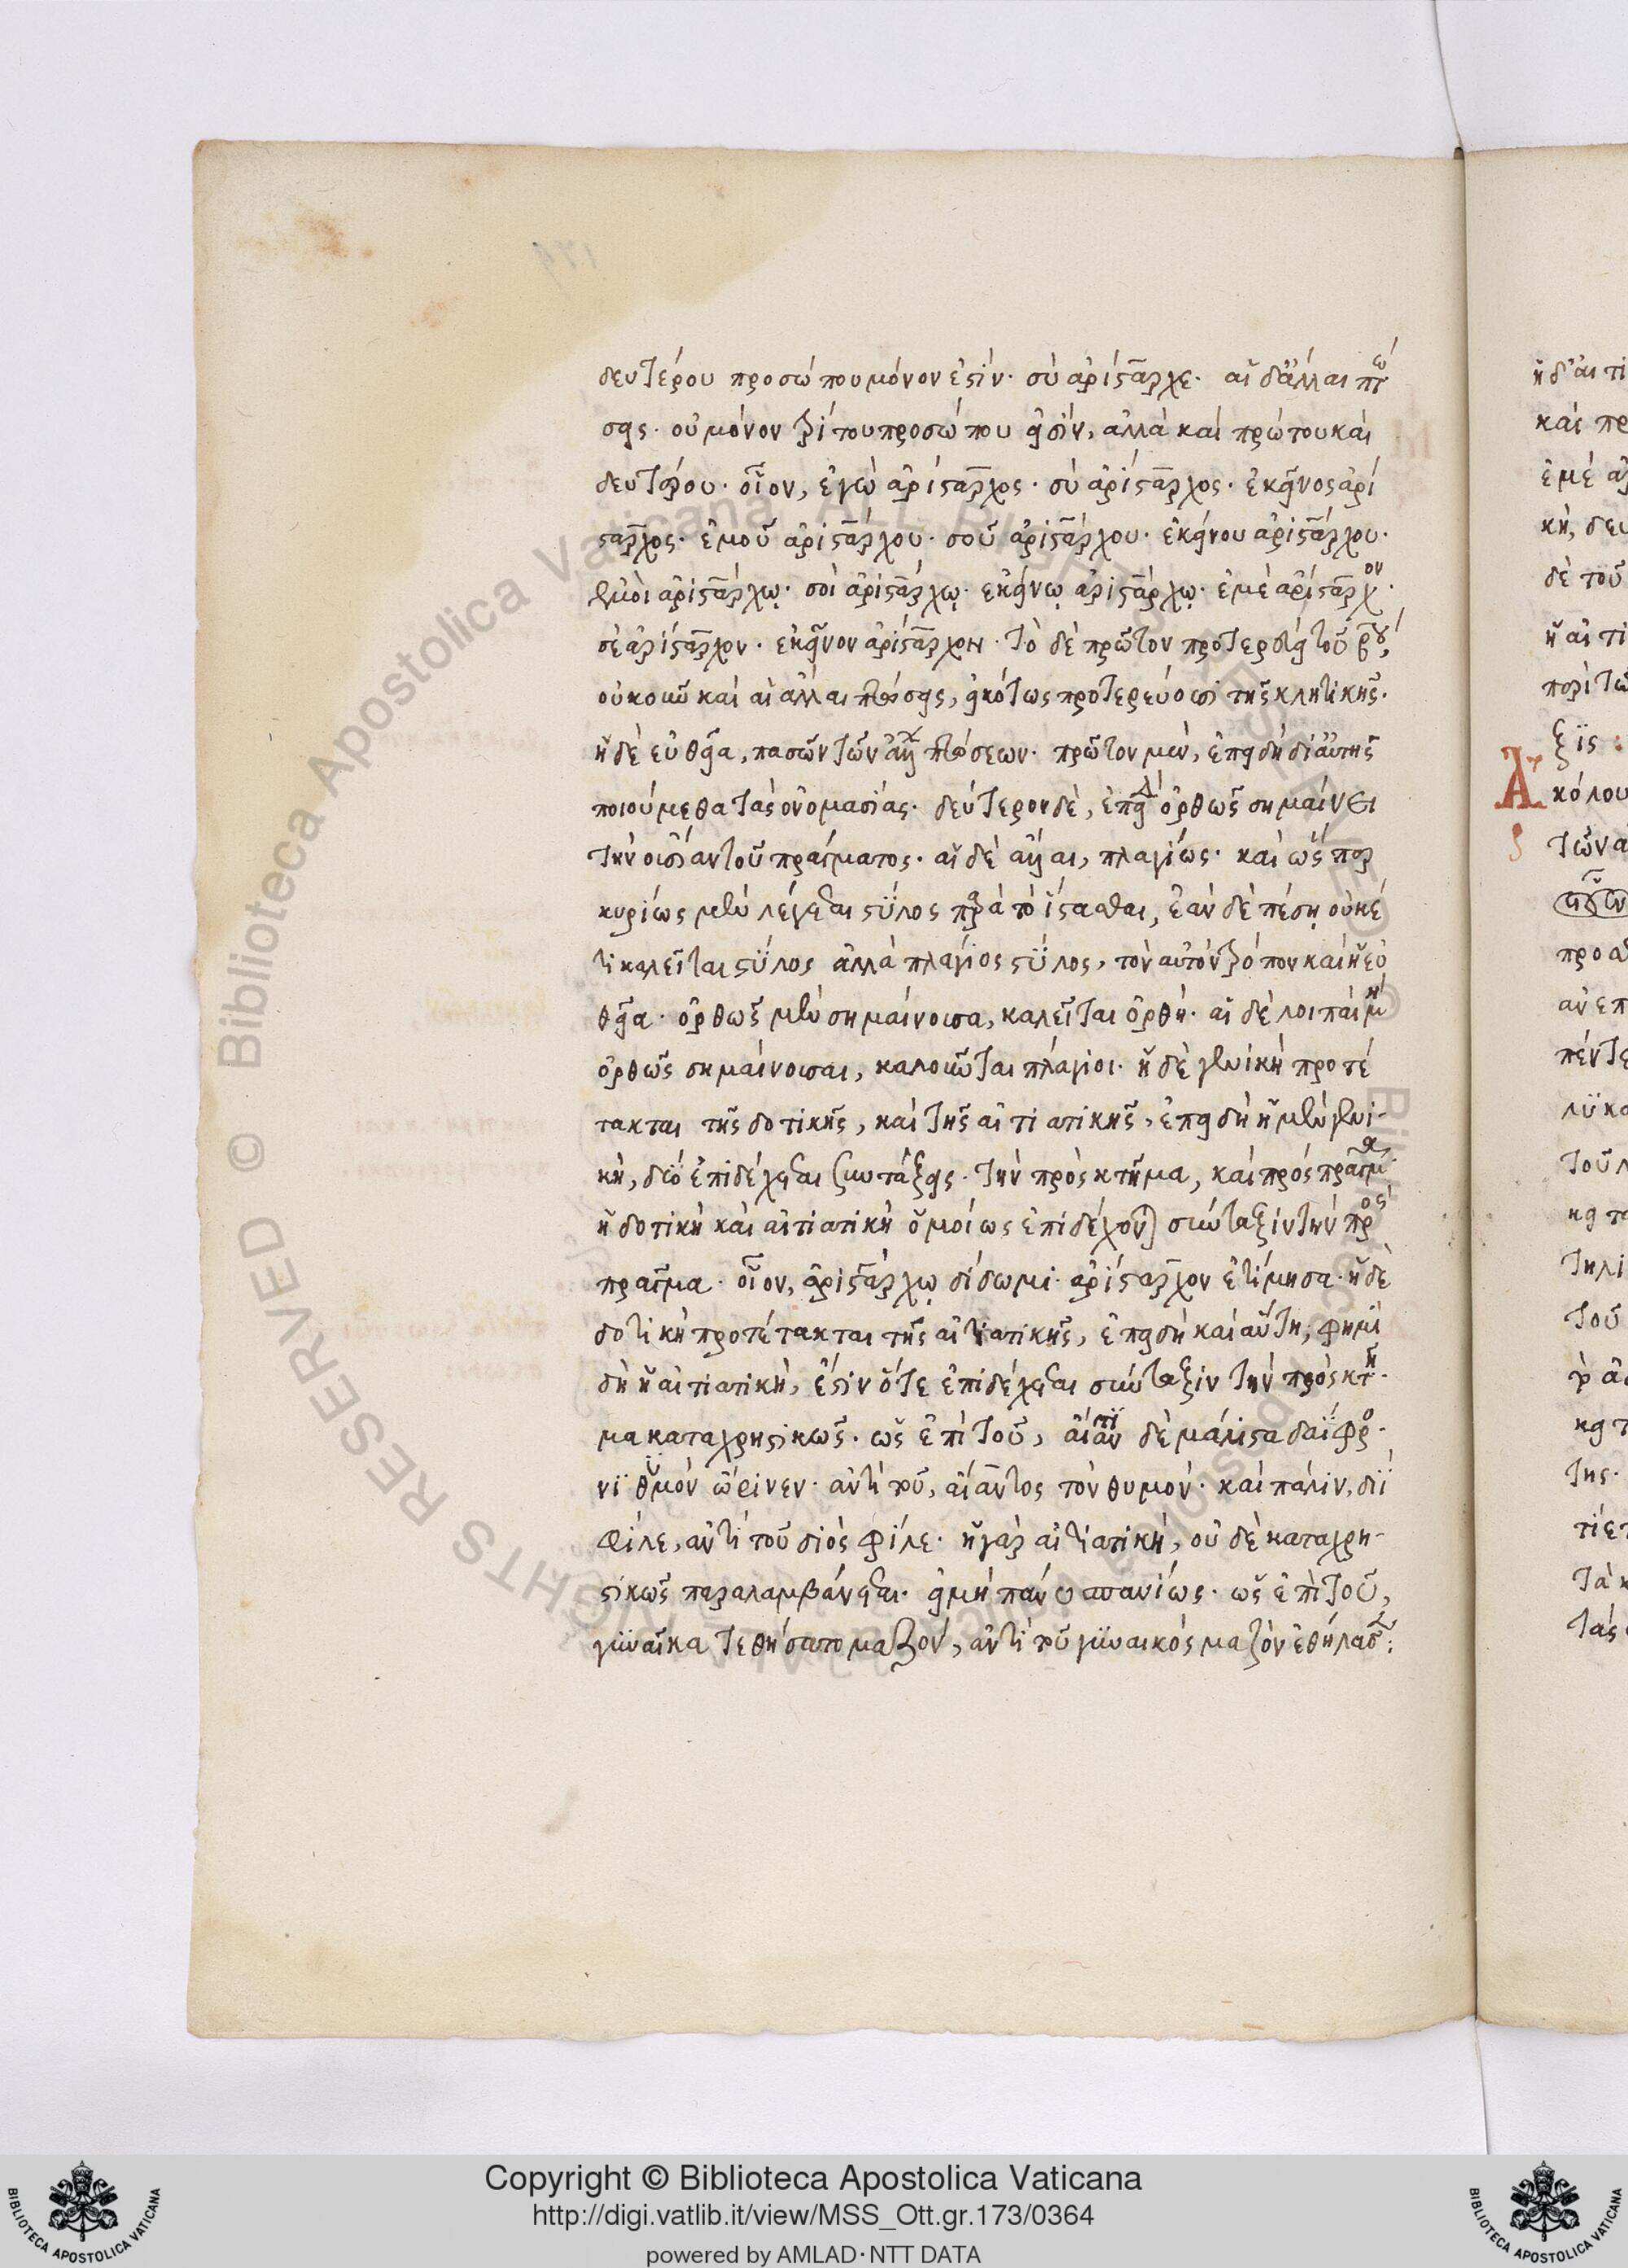 δευτέρου προσώπου μόνον ἐστίν· σὺ ἀρίσταρχε· αἱ δ' ἄλλαι πτώ
σεις· οὐ μόνον τρίτου προσώπου εἰσίν, ἀλλὰ καὶ πρώτου καὶ
δευτέρου· οἷον, ἐγὼ ἀρίσταρχος· σὺ ἀρίσταρχος· ἐκεῖνος ἀρί
σταρχος· ἐμοῦ ἀριστάρχου· σοῦ ἀριστάρχου· ἐκείνου ἀριστάρχου·
ἐμοὶ ἀριστάρχῳ· σοὶ ἀριστάρχῳ· ἐκείνῳ ἀριστάρχῳ· ἐμὲ ἀρίσταρχον·
σὲ ἀρίσταρχον· ἐκεῖνον ἀρίσταρχον· τὸ δὲ πρῶτον προτερεύει τοῦ βου,
οὐκοῦν καὶ αἱ ἄλλαι πτώσεις, εἰκότως προτερεύουσι τῆς κλητικῆς·
ἡ δὲ εὐθεῖα, πασῶν τῶν ἄλλων πτώσεων· πρῶτον μὲν, ἐπειδὴ δι' αὐτῆς
ποιούμεθα τὰς ὀνομασίας· δεύτερον δὲ, ἐπειδὴ ὀρθῶς σημαίνει
τὴν οὐσίαν τοῦ πράγματος· αἱ δὲ ἄλλαι, πλαγίως· καὶ ὥσπερ
κυρίως μὲν λέγεται στύλος παρὰ τὸ ἵστασθαι, ἐὰν δὲ πέσῃ οὐκέ
τι καλεῖται στύλος ἀλλὰ πλάγιος στύλος, τὸν αὐτὸν τρόπον καὶ ἡ εὐ
θεῖα· ὀρθῶς μὲν σημαίνουσα, καλεῖται ὀρθή· αἱ δὲ λοιπαὶ μὴ
ὀρθῶς σημαίνουσαι, καλοῦνται πλάγιοι· ἡ δὲ γενικὴ προτέ
τακται τῆς δοτικῆς, καὶ τῆς αἰτιατικῆς, ἐπειδὴ ἡ μὲν γενι-
κὴ, δύο ἐπιδέχεται συντάξεις· τὴν πρὸς κτῆμα, καὶ πρὸς πρᾶγμα·
ἡ δοτικὴ καὶ αἰτιατικὴ ὁμοίως ἐπιδέχονται σύνταξιν τὴν πρὸς
πρᾶγμα· οἷον, ἀριστάρχῳ δίδωμι· ἀρίσταρχον ἐτίμησα· ἡ δὲ
δοτικὴ προτέτακται τῆς αἰτιατικῆς, ἐπειδὴ καὶ αὕτη, φημὶ
δὴ ἡ αἰτιατικὴ, ἔστιν ὅτε ἐπιδέχεται σύνταξιν τὴν πρὸς κτῆ-
μα καταχρηστικῶς· ὡς ἐπὶ τοῦ, αἴαντι δὲ μάλιστα δαΐφρο-
νι θυμὸν ὤρινεν· ἀντὶ τοῦ, αἴαντος τὸν θυμόν· καὶ πάλιν, διῒ
φίλε, ἀντὶ τοῦ διὸς φίλε· ἡ γὰρ αἰτιατικὴ, οὐδὲ καταχρη-
στικῶς παραλαμβάνεται· εἰ μὴ πάνυ σπανίως· ὡς ἐπὶ τοῦ,
γυναῖκα τε θήσατο μαζόν, ἀντὶ τοῦ γυναικὸς μαζὸν ἐθήλασε:
Copyright © Biblioteca Apostolica Vaticana
http://digi.vatlib.it/view/MSS_Ott.gr.173/0364
powered by AMLAD·NTT DATA